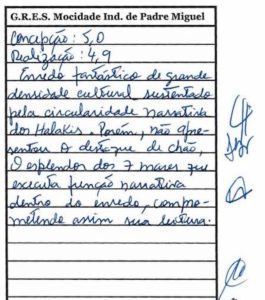 G.R.E.S. Mocidade Ind. de Padre Miguel
Concepção: 5,0
Realização: 4,9
Enredo fantástico de grande
densidade cultural sustentado
pela circularidade narrativa
dos Halakis. Porém, não apre-
sentou o destaque de chão,
O esplendor dos 7 mares que
executa função narrativa
dentro do enredo, compro-
metendo assim sua leitura.